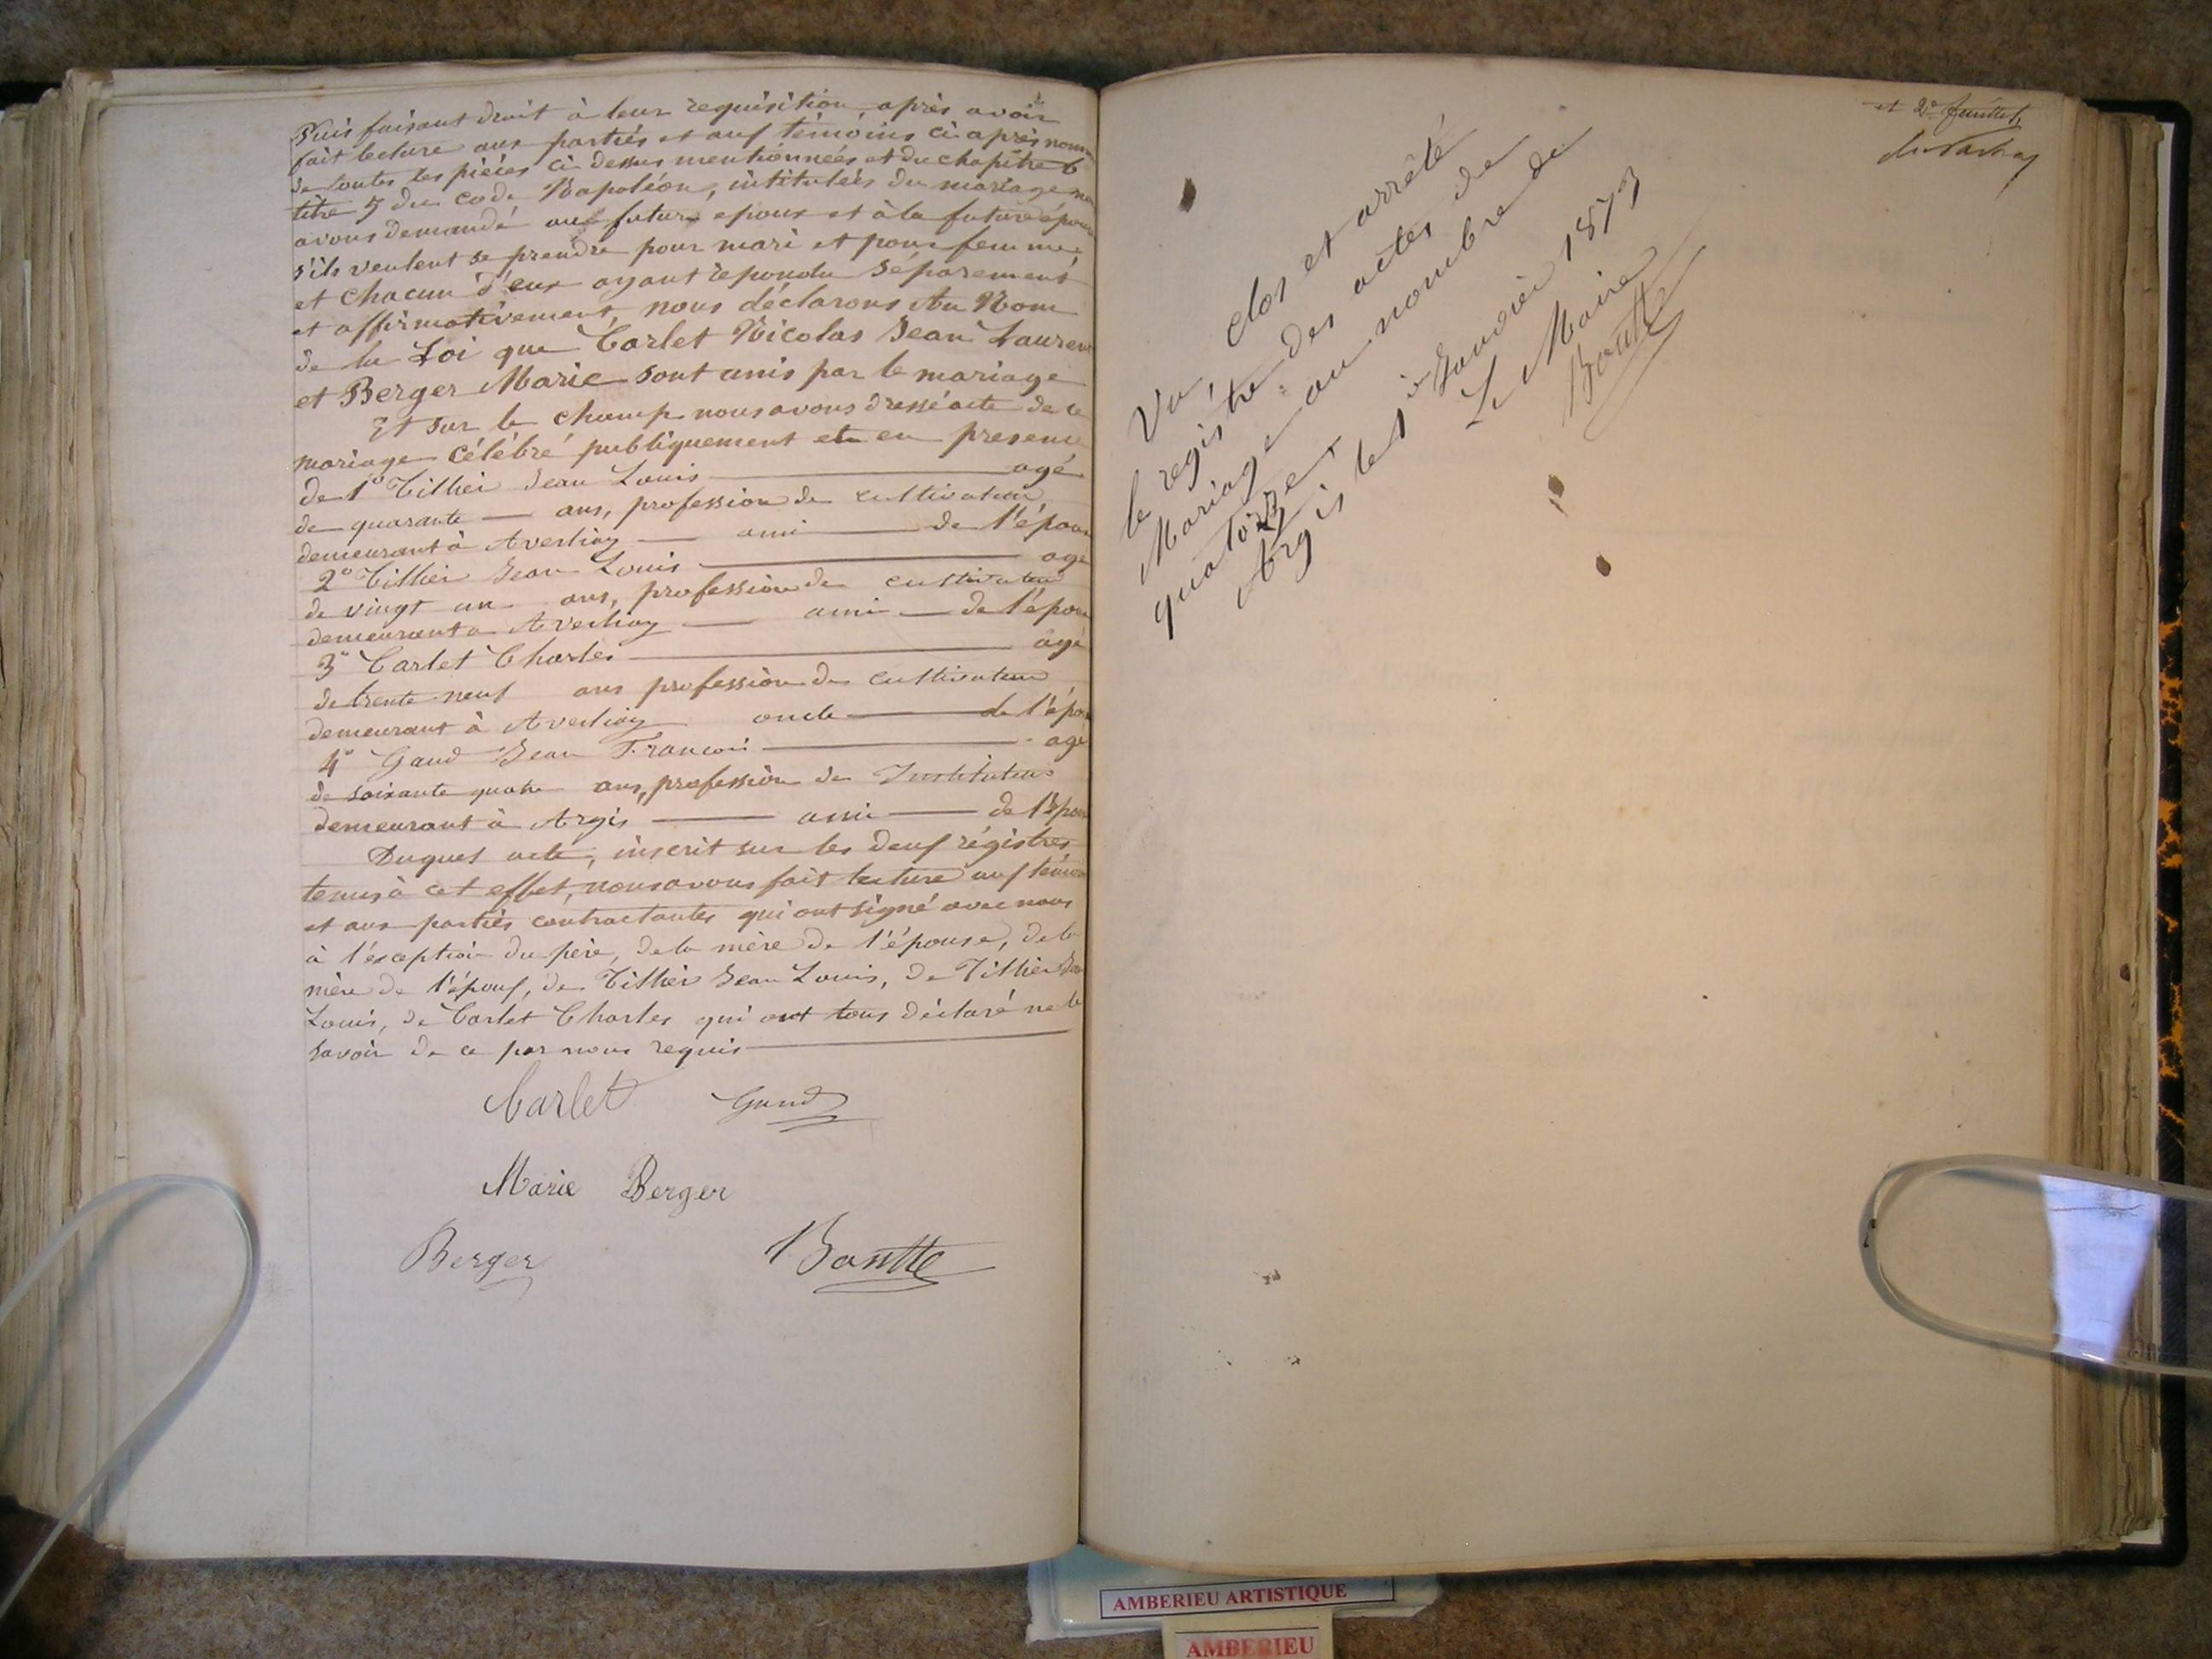 Puis faisant droit à leur requisition après avoir
fait lecture aux parties et auf témoins ci après nom
de toutes les pièces ci dessus mentionnées et du chapitre 6
titre 5 du code Napoléon, intitulées du mariage
avons demandé au futur epoux et à la future épou
s'ils veulent se prendre pour mari et pour femme,
et chacun d'eux ayant repondu séparement
et affirmativement, nous déclarons Au Nom
de la Loi que Carlet Nicolas Jean Lauren
et Berger Marie sont unis par le mariage
Et sur le champ nous avons dressé acte de ce
mariage célébré publiquement et en presence
de 1° Tillier Jean Louis agé
de quarante ans, profession de cultivateur
demeurant à Averliaz ami de l'épou
2° Tillier Jean Louis agé
de vingt un ans, profession de cultivateur
demeurant à Averliaz ami de l'épou
3° Carlet Charles agé
de trente neuf ans profession de cultivateur
demeurant à Averliaz oncle de l'épou
4° Gaud Jean Francois agé
de soixante quatre ans, profession de Instituteur
demeurant à Argis ami de l'épou
Duquel acte, inscrit sur les deuf régistres
tenus à cet effet, nous avons fait lecture auf témoin
et aux parties contractantes qui ont signé avec nous
à l'exception du père, de la mère de l'épouse, de la
mère de l'épouf, de Tillier Jean Louis, de Tillier Jean
Louis, de Carlet Charles qui ont tous déclaré ne le
savoir de ce par nous requis
Carlet Gaud
Marie Berger
Berger Boutte
et 2e feuillet,
Vu, clos et arrêté
le registre des actes de
Mariage au nombre de
quatorze
Argis le 1er Janvier 1873
Le Maire
Boutte
AMBERIEU ARTISTIQUE
AMBERIEU